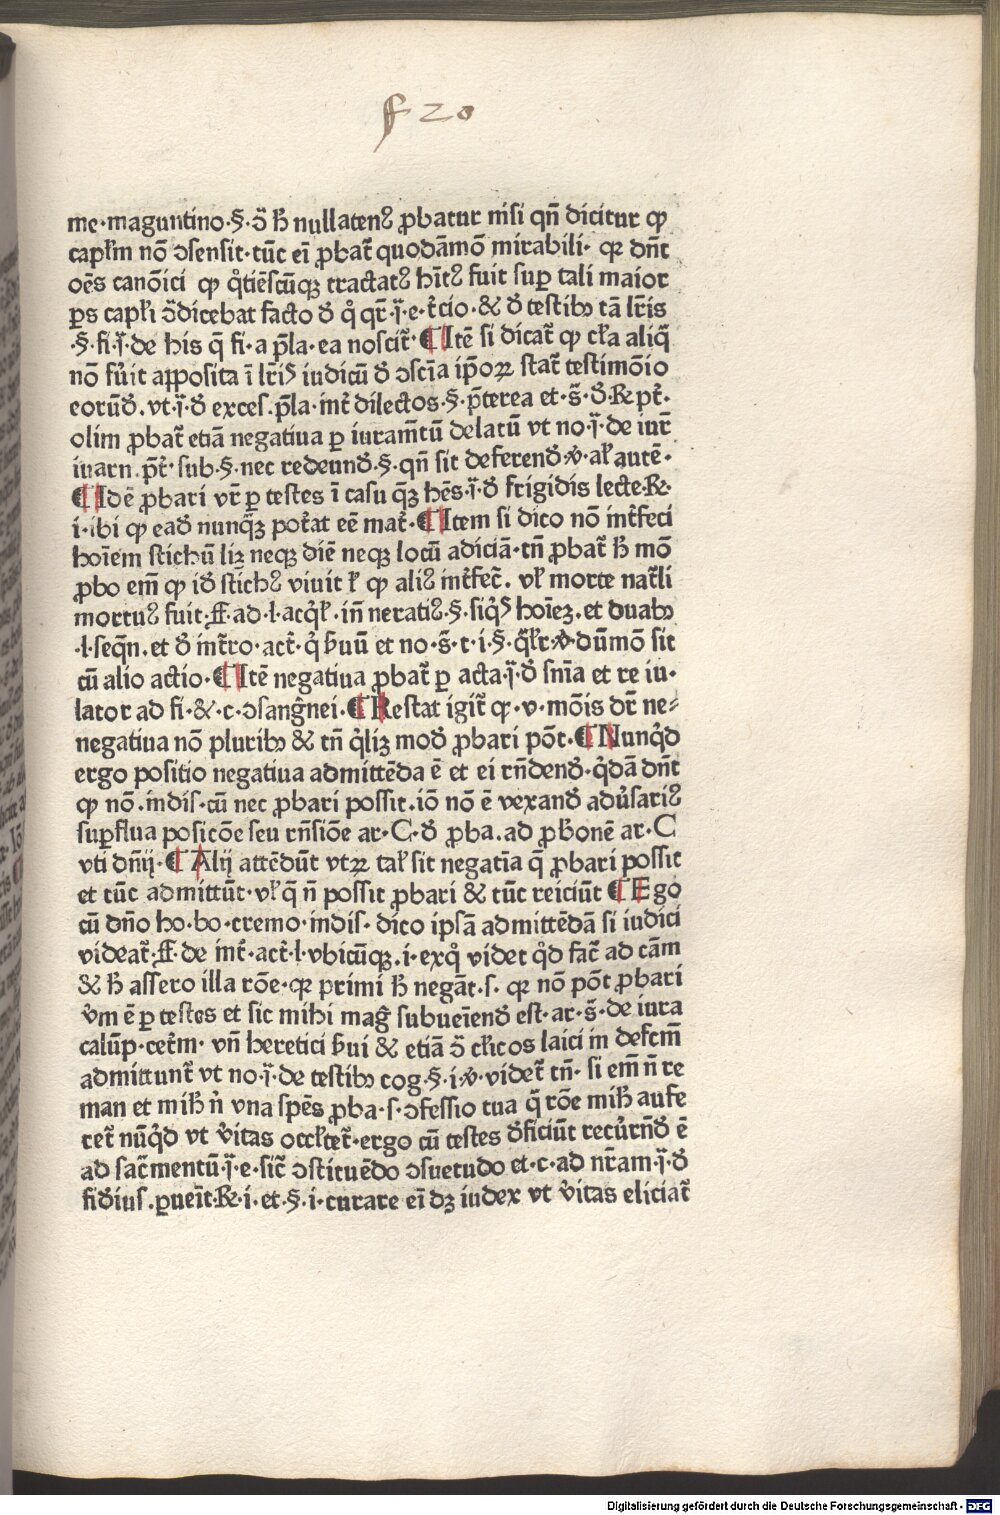 f 20
me·maguntino·§·ↄ̄ h̄ nullatenꝰ ꝓbatur nisi qn̄ dicitur ꝙ
capłm nō ↄsensit·tūc eī ꝓbat᷑ quodāmō mirabili· qꝛ dn̄t
oēs canōici ꝙ q̊tiēscūqꝫ tractatꝰ hītꝰ fuit suꝑ tali maior
ꝑs capłi ↄ̄dicebat facto đ q̊ qr̄·j̄·e·t̄cio·& đ testibꝫ tā lr̄is
·§·fi·j̄·de his q̄ fi·a p̄la·ea noscit᷑·¶Itē si dicat᷑ ꝙ cła aliq̄
nō fu̓it apposita ī lr̄is iudicū đ ↄscīa ip̄oꝝ stat᷑ testimōio
eorūđ·vt·j̄·đ exces·p̄la·int̄ dilectos·§·p̄terea et·s̄·đ·R̷ pt̄·
olim ꝓbat᷑ etiā negatiua ꝑ iuram̄tū delatū vt no·j̄·de iur̄
iuarn·p̄t᷑·sub·§·nec redeunđ·§·qn̄ sit deferenđ·ꝟ·ał autē·
¶Idē ꝓbari vr̄ ꝑ testes ī casu qꝫ hēs·j̄·đ frigidis lecte·R̷·
i·ibi ꝙ eađ nunqꝫ pot̄at eē mat᷑·¶Item si dico nō int̄feci
hoīem stichū liꝫ neqꝫ diē neqꝫ locū adiciā·tn̄ ꝓbat᷑ h̄ mō
ꝓbo em̄ ꝙ iđ stichꝰ viuit ł ꝙ aliꝰ int̄fec̄t. vł morte nat᷑li
mortuꝰ fuit·ff·ad·l·acq̊ł·in̄ neratiꝰ·§·siqꝭ hoīeꝫ·et duabꝫ
·l·seqn̄·et đ int̄ro·act᷑·q̊ ƀuū et no·s̄·t·i·§·q̄łr·ꝟ·dūmō sit
cū alio actio·¶Itē negatiua ꝓbat᷑ ꝑ acta·j̄·đ sn̄ia et re iu·
lator ad fi·&·c·ↄsang̊nei·¶Restat igit᷑ ꝙ·v·mōis dr̄ ne⸗
negatiua nō pluribꝫ & tn̄ q̊liꝫ mođ ꝓbari pōt·¶Nunq̊d
ergo positio negatiua admittēda ē et ei rn̄denđ·q̊dā dn̄t
ꝙ nō·indis·cū nec ꝓbari possit·iō nō ē vexanđ adu̓sariꝰ
suꝑflua posicōe seu rn̄siōe ar·C·đ ꝓba·ad ꝓƀonē ar·C
vti dn̄ij·¶Alij attēdūt vtꝝ tał sit negatīa q̄ ꝓbari possit
et tūc admittūt·vł q̄ n̄ possit ꝓbari & tūc reiciūt ¶Ego
cū dn̄o ho·bo·cremo·indis·dico ipsā admittēdā si iudici
videat᷑·ff·de int᷑·act᷑·l·vbicūqꝫ·i·exq̊ videt q̊d fac̄t ad cām
& h̄ assero illa rōe·qꝛ primi h̄ negāt·s·qꝛ nō pōt ꝓbari
v̓m ē ꝑ testes et sic mihi mag̊ subueīenđ est·ar·s̄·de iura
calūp·cet᷑m·vn̄ heretici ƀui & etiā ↄ̄ clicos laici in defcm̄
admittunt᷑ vt no·j̄·de testibꝫ cog·§·i·ꝟ·videt᷑ tn̄·si em̄ n̄ re
man et mih̄ n̓ vna spēs ꝓba·s·ↄfessio tua q̄ rōe mih̄ aufe
ret᷑ nūq̊d vt v̓itas occłtet᷑·ergo cū testes đficiūt recu̓rn̄đ ē
ad sac̄mentū·j̄·e·sic̄ ↄstituēdo ↄsuetudo et·c·ad nr̄am·j̄·đ
fiđius·ꝑueīt·R̷·i·et·§·i·curare eī dꝫ iudex vt v̓itas eliciat᷑
Digitalisierung gefördert durch die Deutsche Forschungsgemeinschaft - DFG